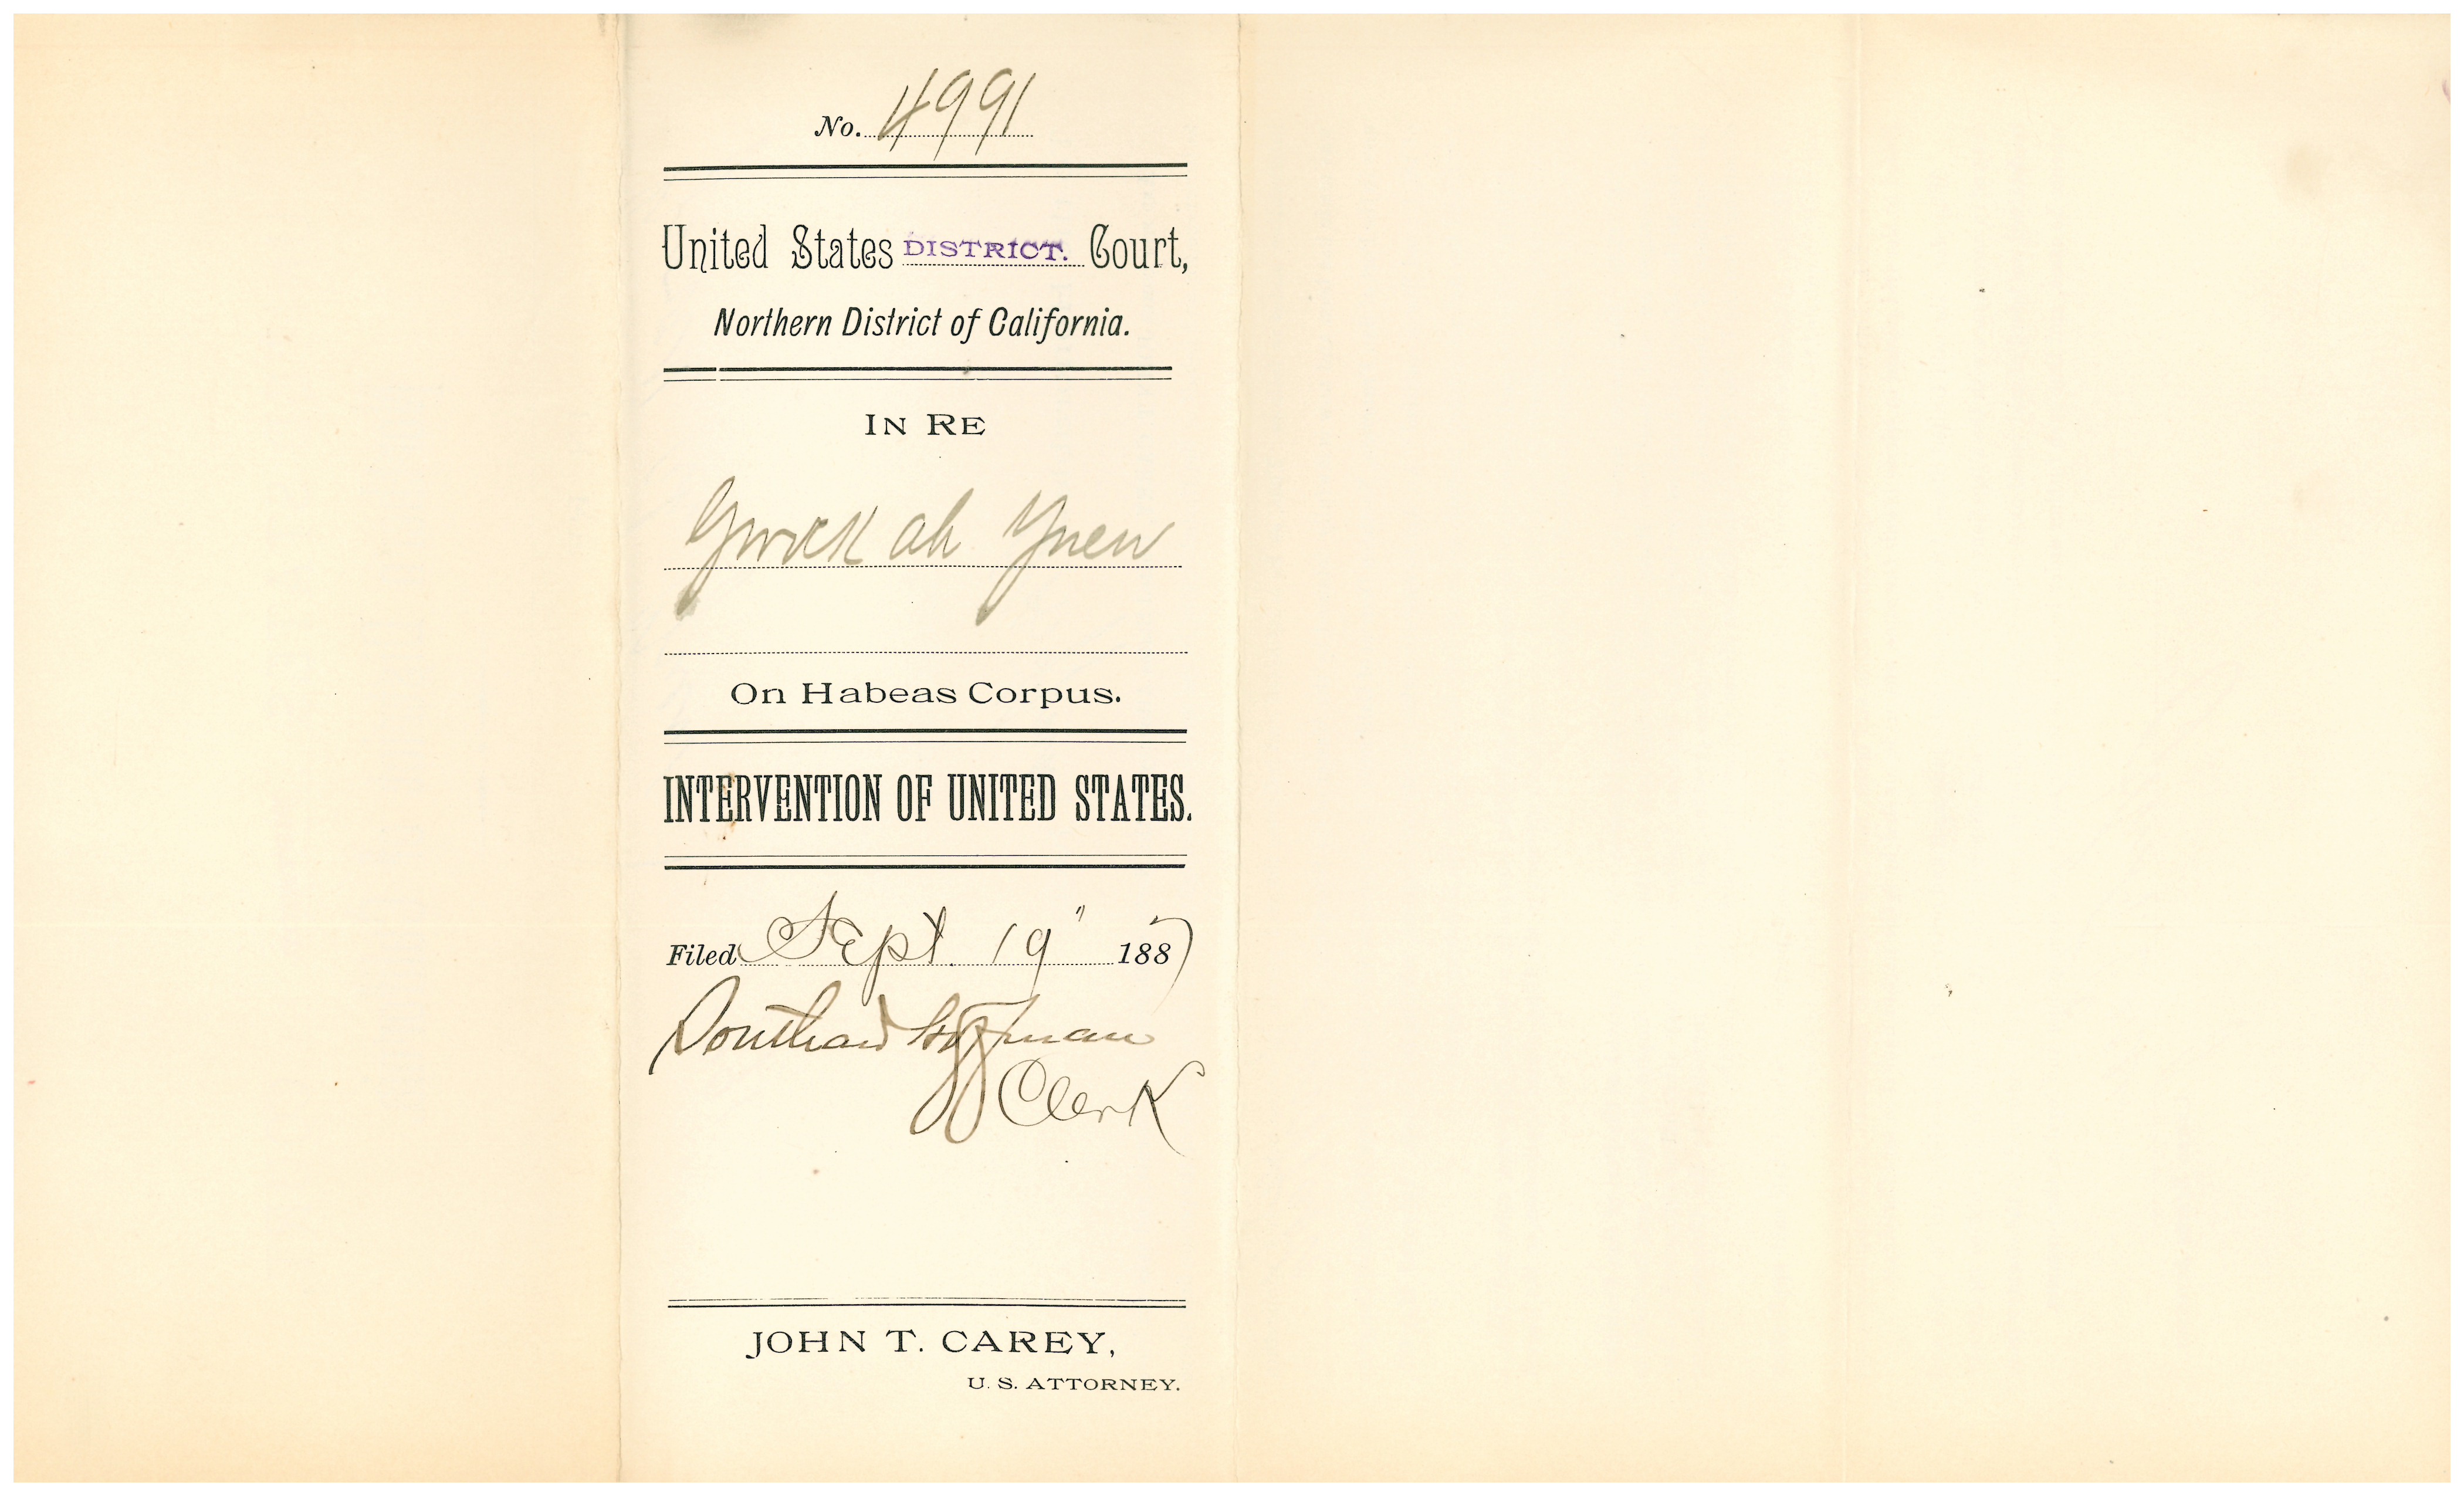 No. 4991
United States DISTRICT. Court,
Northern District of California.
IN RE
Gwick ah Yuen
On Habeas Corpus.
INTERVENTION OF UNITED STATES.
Filed Sept. 19" 1887
Southard Hoffman
Clerk
JOHN T. CAREY,
U. S. ATTORNEY.